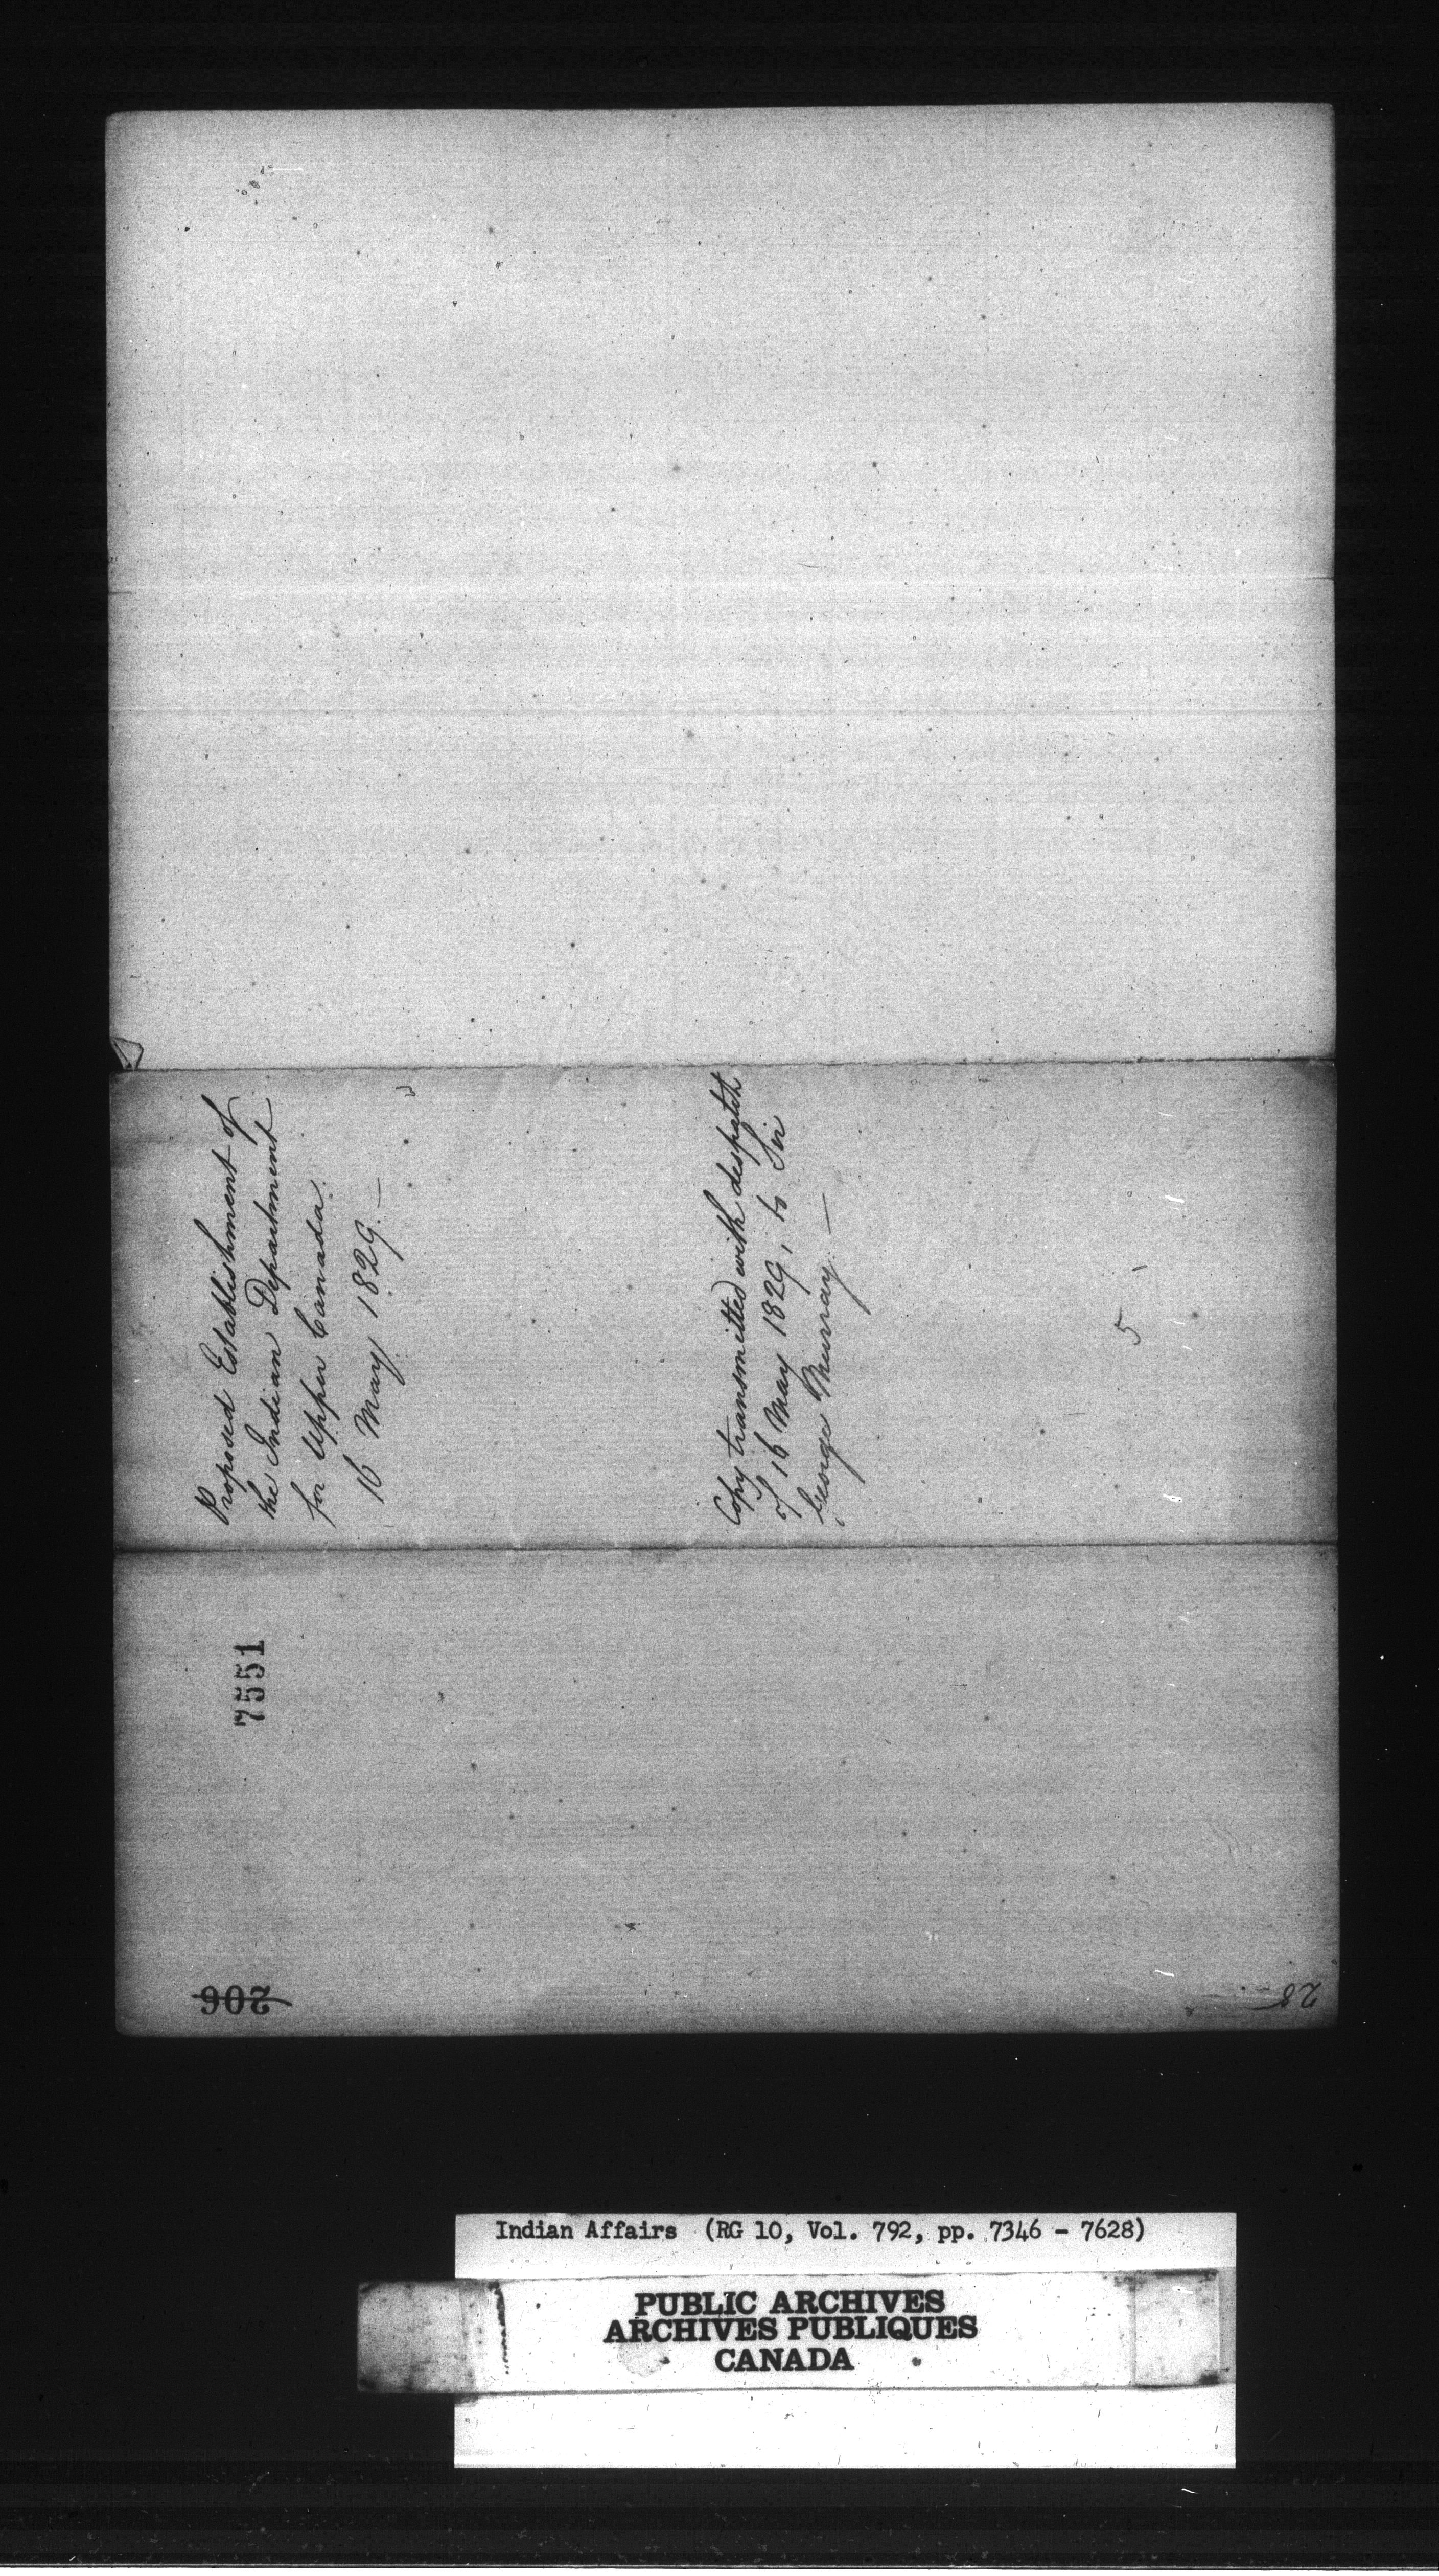 Proposed Establishment of
the Indian Department
for Upper Canada.
16 May 1829.—
Copy transmitted with despatch
of 16 May 1829, to Sir
George Murray.—
5
7551
206
28
Indian Affairs (RG 10, Vol. 792, pp. 7346 - 7628)
PUBLIC ARCHIVES
ARCHIVES PUBLIQUES
CANADA